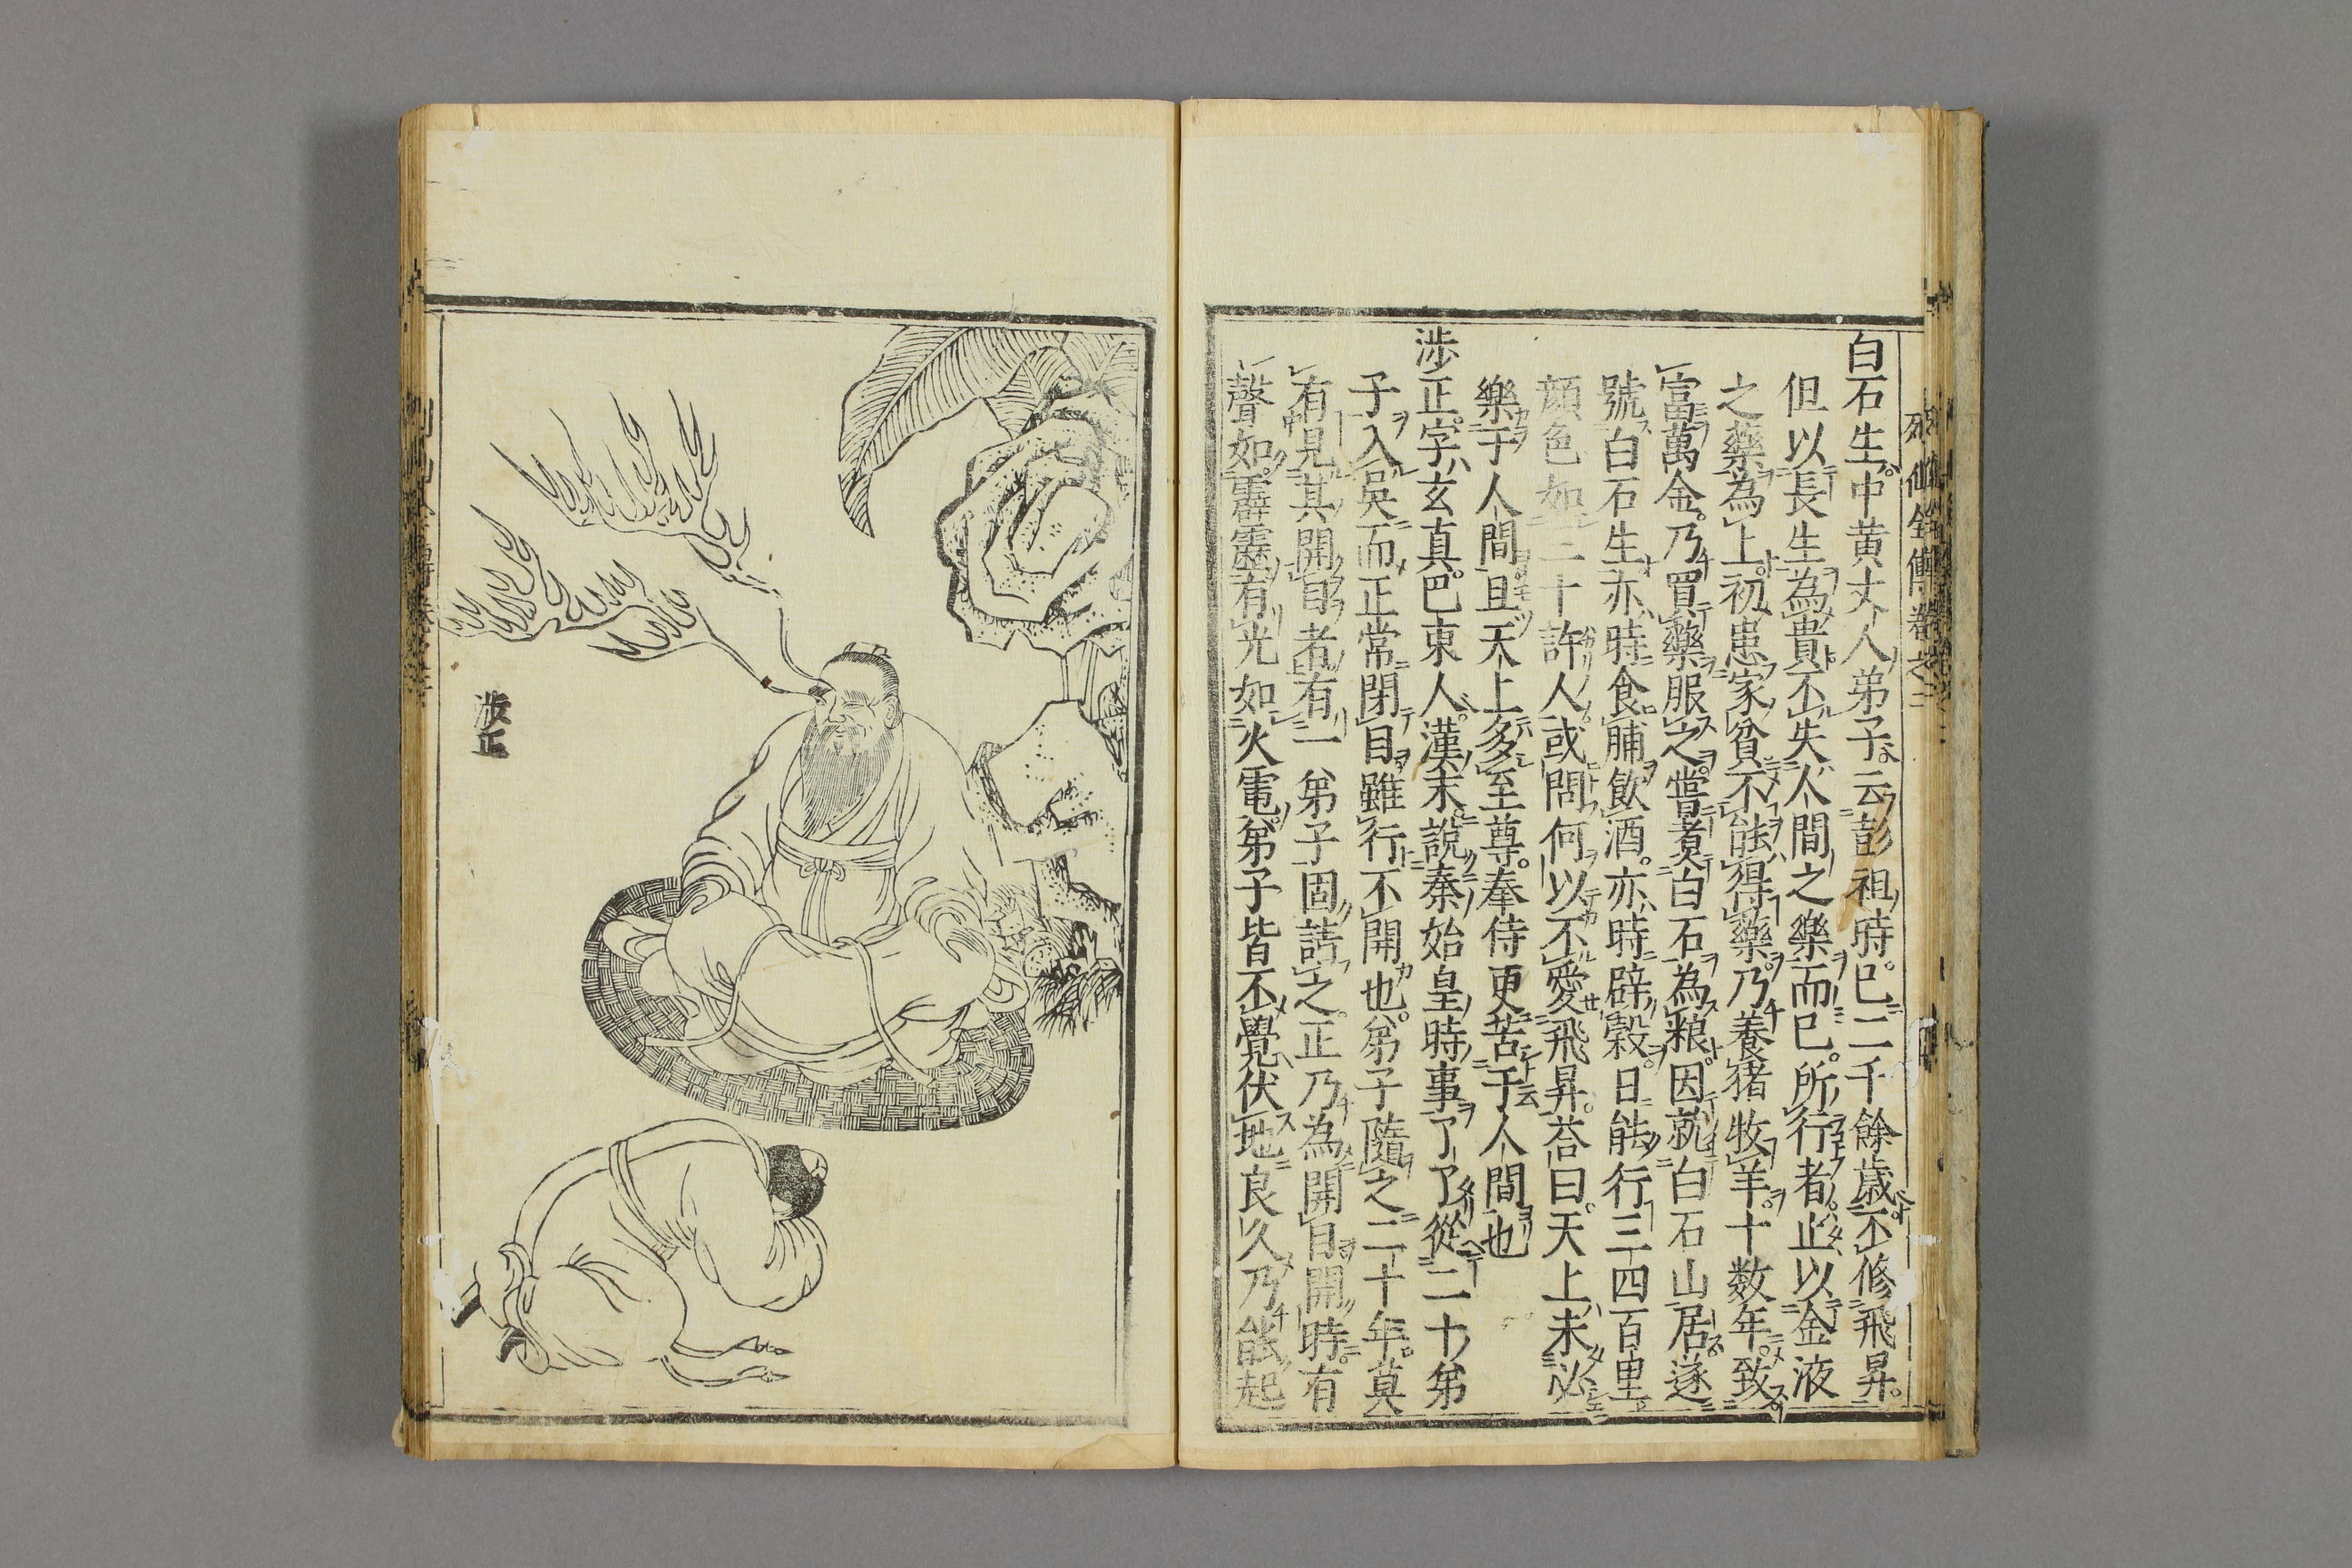 仙全傳卷之二
白石生。中黄丈人弟子。云彭祖時。已二千餘歳。不修飛昇。
但以長生為貴。不失人間之樂而已。所行者。止以金液
之藥為上。初患家貧。不能得藥。乃養猪牧羊。十数年。致
富萬金。乃買藥服之。嘗煮白石為粮。因就白石山居。遂
號白石生。亦時食脯飲酒。亦時辟穀。日能行三四百里。
顔色如三十許人。或問何以不愛飛昇。荅曰。天上未必
樂于人間。且天上多至尊。奉侍更苦于人間也
渉正。字玄真。巴東人。漢末説秦始皇時事了了。從二十弟
子入吳。而正常閉目。雖行不開也。弟子隨之二十年。莫
有見其開目者。有一弟子固請之。正乃為開目。開時。有
聲如霹靂。有光如火電。弟子皆不覺伏地。良久乃能起
渉正